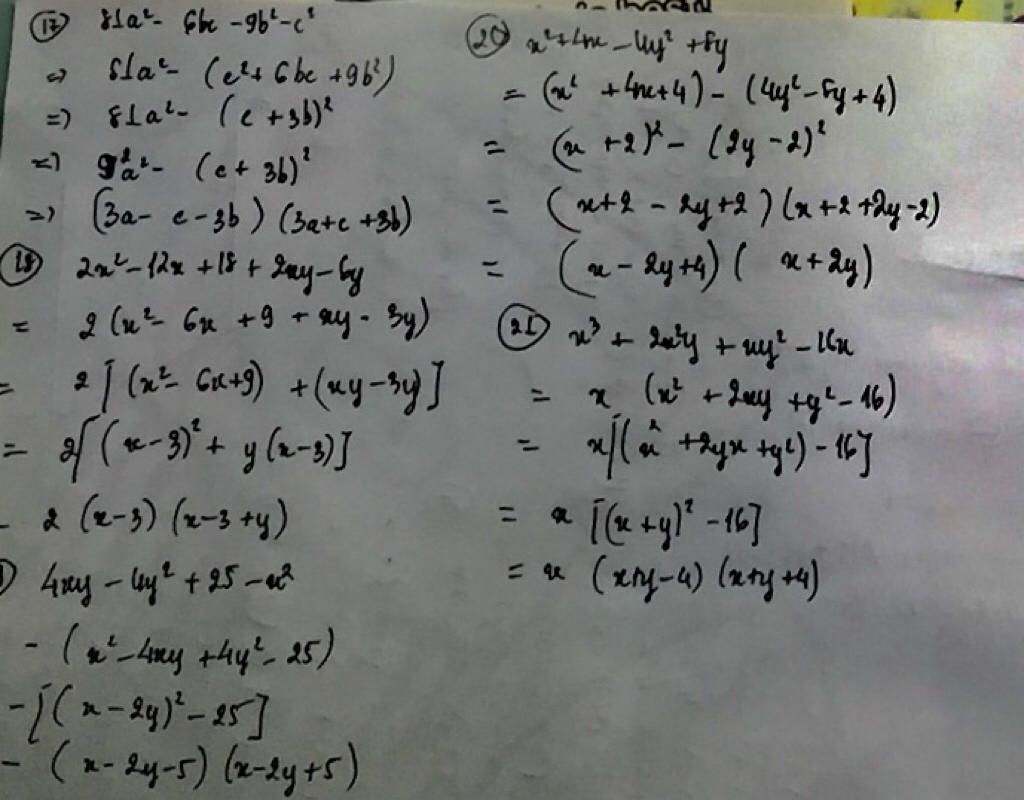 17) 81a² - 6bc - 9b² - c²
=> 81a² - (c² + 6bc + 9b²)
=> 81a² - (c + 3b)²
=> 9²a² - (c + 3b)²
=> (3a - c - 3b) (3a + c + 3b)
18) 2x² - 12x + 18 + 2xy - 6y
= 2 (x² - 6x + 9 + xy - 3y)
= 2 [(x² - 6x + 9) + (xy - 3y)]
= 2[(x - 3)² + y(x - 3)]
- 2 (x - 3) (x - 3 + y)
) 4xy - 4y² + 25 - x²
- (x² - 4xy + 4y² - 25)
- [(x - 2y)² - 25]
- (x - 2y - 5) (x - 2y + 5)
20) x² + 4x - 4y² + 8y
= (x² + 4x + 4) - (4y² - 8y + 4)
= (x + 2)² - (2y - 2)²
= (x + 2 - 2y + 2) (x + 2 + 2y - 2)
= (x - 2y + 4) (x + 2y)
21) x³ + 2x²y + xy² - 16x
= x (x² + 2xy + y² - 16)
= x[(x² + 2yx + y²) - 16]
= x [(x + y)² - 16]
= x (x + y - 4) (x + y + 4)